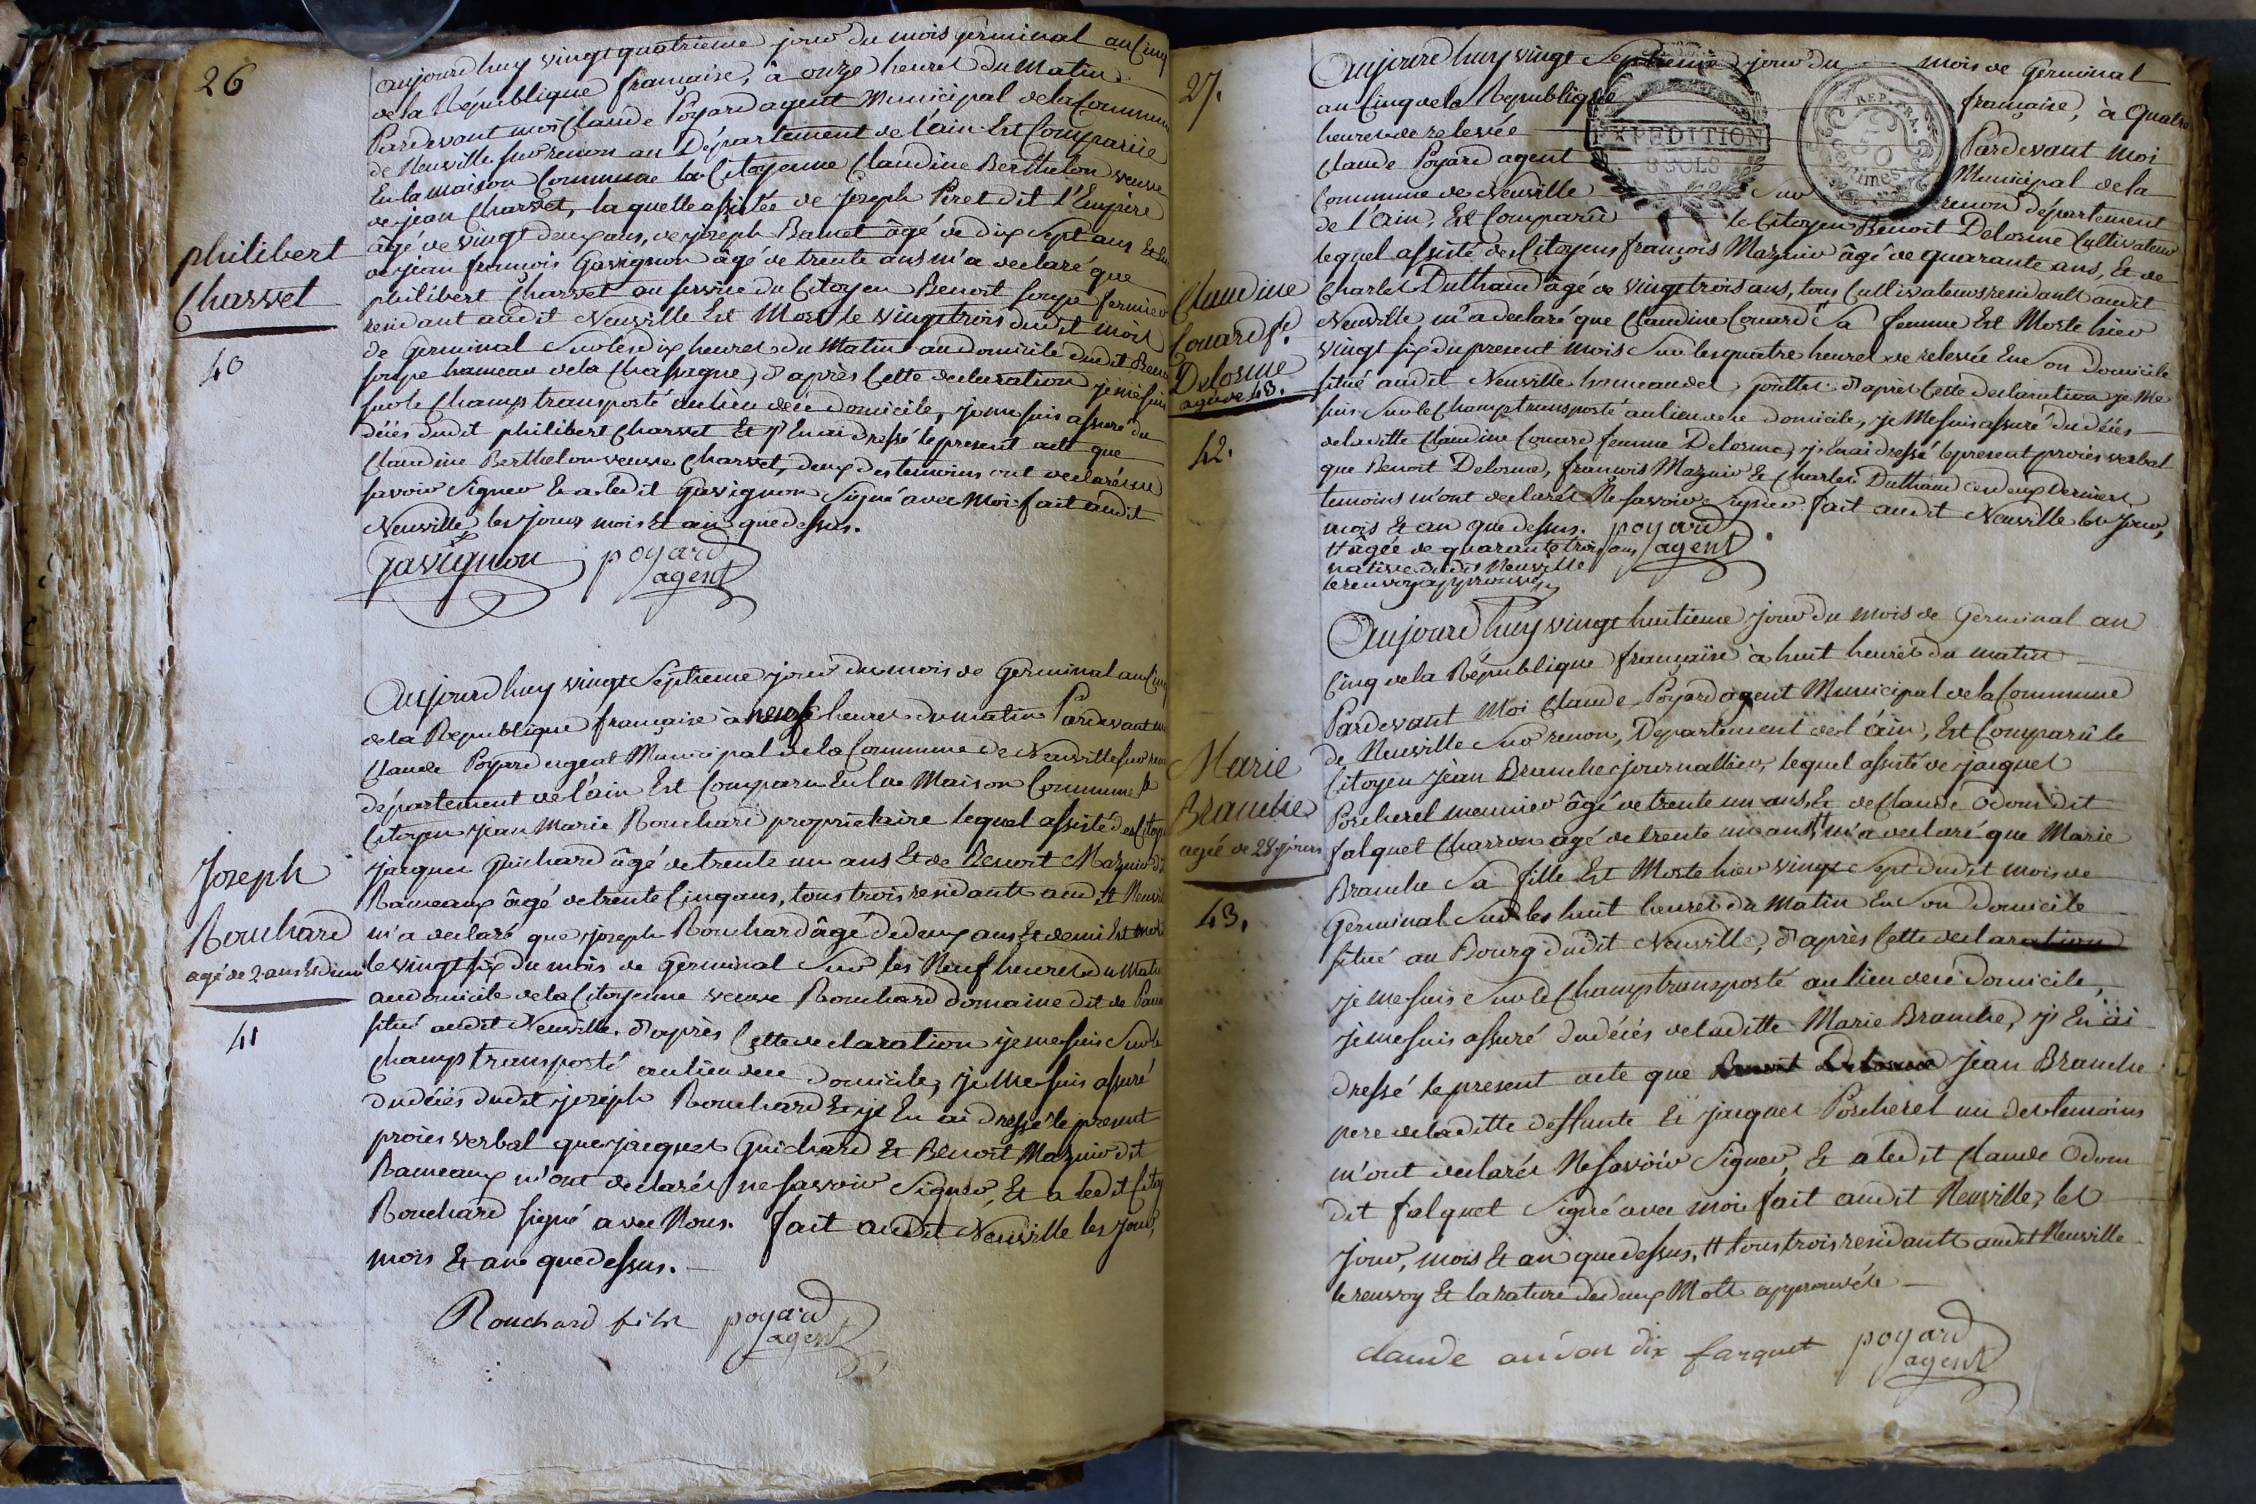 26
aujourd huy vingt quatrieme jour du mois germinal an Cinq
de la République française, à onze heures du Matin
Pardevant moi Claude Poyard agent Municipal de la Commune
de Neuville sur renon au Département de l'ain Est Comparüe
En la maison Commune la Citoyenne Claudine Berthelon veuve
de jean Charvet, la quelle assistée de Joseph Peret dit l'Empire
âgé de vingt deux ans, de joseph Bamet âgé de dix sept ans Et
de jean françois Gavignon âgé de trente ans m'a declaré que
philibert Charvet au service du Citoyen Benoit soupe fermier
residant audit Neuville Est Mort le vingt trois dudit mois
de Germinal Sur les dix heures du Matin au domicile dudit Benoit
soupe hameau de la Chassagne, d'après Cette declaration je me suis
sur le Champ transporté au lieu de ce domicile, je me suis assuré du
décès dudit philibert Charvet Et j'En ai dressé le present acte que
Claudine Berthelon veuve Charvet, deux des temoins ont declaré ne
savoir Signer Et a ledit Gavignon Signé avec Moi fait audit
Neuville les jour mois Et an que dessus.
Gavignon poyard
agent
philibert
Charvet
40
Aujourd huy vingt Septieme jour du mois de Germinal an Cinq
de la Republique française à neuf heures du matin Pardevant moi
Claude Poyard agent Municipal de la Commune de Neuville sur renon
département de l'ain Est Comparu En la Maison Commune le
Citoyen jean Marie Rouchard propriétaire lequel assisté des Citoyens
jacques Guichard âgé de trente un ans Et de Benoit Mazuir dit
Rameaux âgé de trente Cinq ans, tous trois residants audit Neuville
m'a declaré que joseph Rouchard âgé de deux ans Et demi Est mort
le vingt six du mois de Germinal Sur les Neuf heures du Matin
au domicile de la Citoyenne veuve Rouchard domaine dit de
situé audit Neuville. d'après Cette declaration je me suis Sur le
Champ transporté au lieu de ce domicile, je me suis assuré
du décès dudit joseph Rouchard Et j'En ai dressé le present
procès verbal que jacques Guichard Et Benoit Mazuir dit
Rameaux m'ont declarés ne savoir Signer, Et a ledit Citoyen
Rouchard signé avec Nous. fait audit Neuville les jour,
mois Et an que dessus.
Rouchard fils poyard
agent
Joseph
Rouchard
agé de 2 ans Et demi
41
27.
Aujourd huy vingt Septieme jour du mois de Germinal
an Cinq de la Republique française, à Quatre
heures de relevée Pardevant moi
Claude Poyard agent Municipal de la
Commune de Neuville Sur renon département
de l'Ain, Est Comparû le Citoyen Benoit Delorme Cultivateur
lequel assisté des Citoyens françois Mazuir âgé de quarante ans, Et de
Charles Duthaud âgé de vingt trois ans, tous Cultivateurs residants audit
Neuville m'a declaré que Claudine Couard tt Sa femme Est Morte hier
vingt six du present mois Sur les quatre heures de relevée En Son Domicile
situé audit Neuville hameau des d'après Cette declaration je Me
suis Sur le Champ transporté au lieu de ce domicile, je Me suis assuré du décès
de la ditte Claudine Couard femme Delorme, j'En ai dressé le present procès verbal
que Benoit Delorme, françois Mazuir & Charles Duthaud Ces deux Derniers
temoins m'ont declarés Ne savoir Signer. fait audit Neuville les Jour,
mois Et an que dessus. poyard
agent
tt âgée de quarante trois ans
native dudit Neuville
le renvoy approuvé
EXPEDITION
8 SOLS
REP. FRA.
50
Centimes
Claudine
Couard fe
Delorme
agée de 43.
42.
Aujourd huy vingt huitieme jour du mois de Germinal an
Cinq de la République française à huit heures du matin
Pardevant Moi Claude Poyard agent Municipal de la Commune
de Neuville Sur renon, Département de l'ain, Est Comparû le
Citoyen jean Branche journallier, lequel assisté de jacques
Porcherel meunier âgé de trente un ans, Et de Claude Odoin dit
falquet Charron agé de trente un ans tt m'a declaré que Marie
Branche Sa fille Est Morte hier vingt Sept dudit mois de
Germinal Sur les huit heures du Matin En Son domicile
situé au Bourg dudit Neuville, d'après Cette declaration
je me suis Sur le Champ transporté au lieu de ce domicile,
je me suis assuré du décès de laditte Marie Branche, j'En ai
dressé le present acte que Benoit Delorme Jean Branche
pere de laditte deffunte Et jacques Porcherel un des temoins
m'ont declarés Ne savoir Signer, Et a ledit Claude Odoin
dit falquet Signé avec moi fait audit Neuville, les
Jour, mois Et an que dessus, tt tous trois residants audit Neuville
le renvoy Et la rature des deux Mots approuvés
claude audoin dix farquet poyard
agent
Marie
Branche
agée de 28 jours
43.